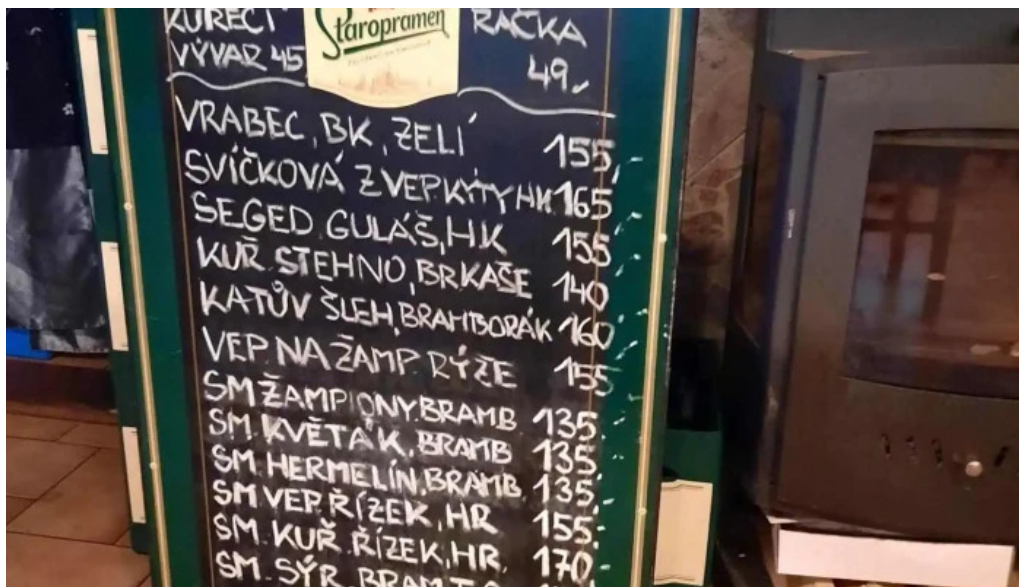 KUŘECÍ
VÝVAR 45
Staropramen
RAČKA
49,-
VRABEC, BK, ZELÍ 155,-
SVÍČKOVÁ Z VEP. KÝTY HK 165,-
SEGED. GULÁŠ, H.K 155,-
KUŘ. STEHNO, BR KAŠE 140,-
KATŮV ŠLEH, BRAMBORÁK 160,-
VEP. NA ŽAMP. RÝŽE 155,-
SM ŽAMPIONY, BRAMB 135,-
SM. KVĚTÁK, BRAMB 135,-
SM. HERMELÍN, BRAMB. 135,-
SM. VEP. ŘÍZEK, HR 155,-
SM. KUŘ. ŘÍZEK, HR. 170,-
SM. SÝR,